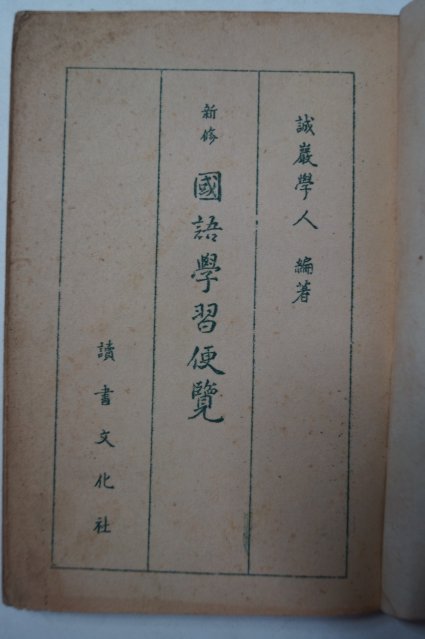 誠巖學人 編著
新修 國語學習便覽
讀書文化社